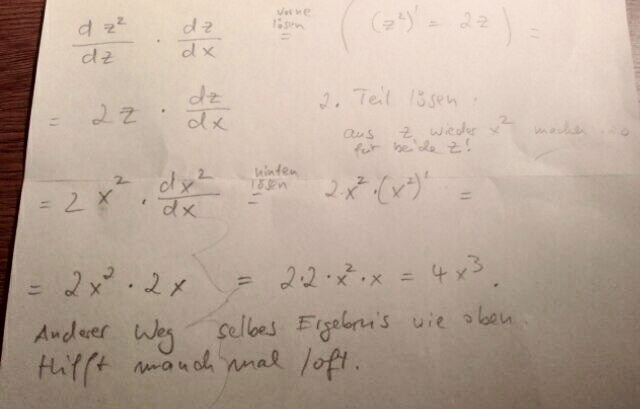 d z²/dz · dz/dx vorne lösen = ( (z²)' = 2z ) =
= 2z · dz/dx 2. Teil lösen:
aus z wieder x² machen...
für beide z!
= 2 x² · dx²/dx hinten lösen = 2·x²·(x²)' =
= 2x² · 2x = 2·2·x²·x = 4x³.
Anderer Weg selbes Ergebnis wie oben.
Hilfft manchmal /oft.